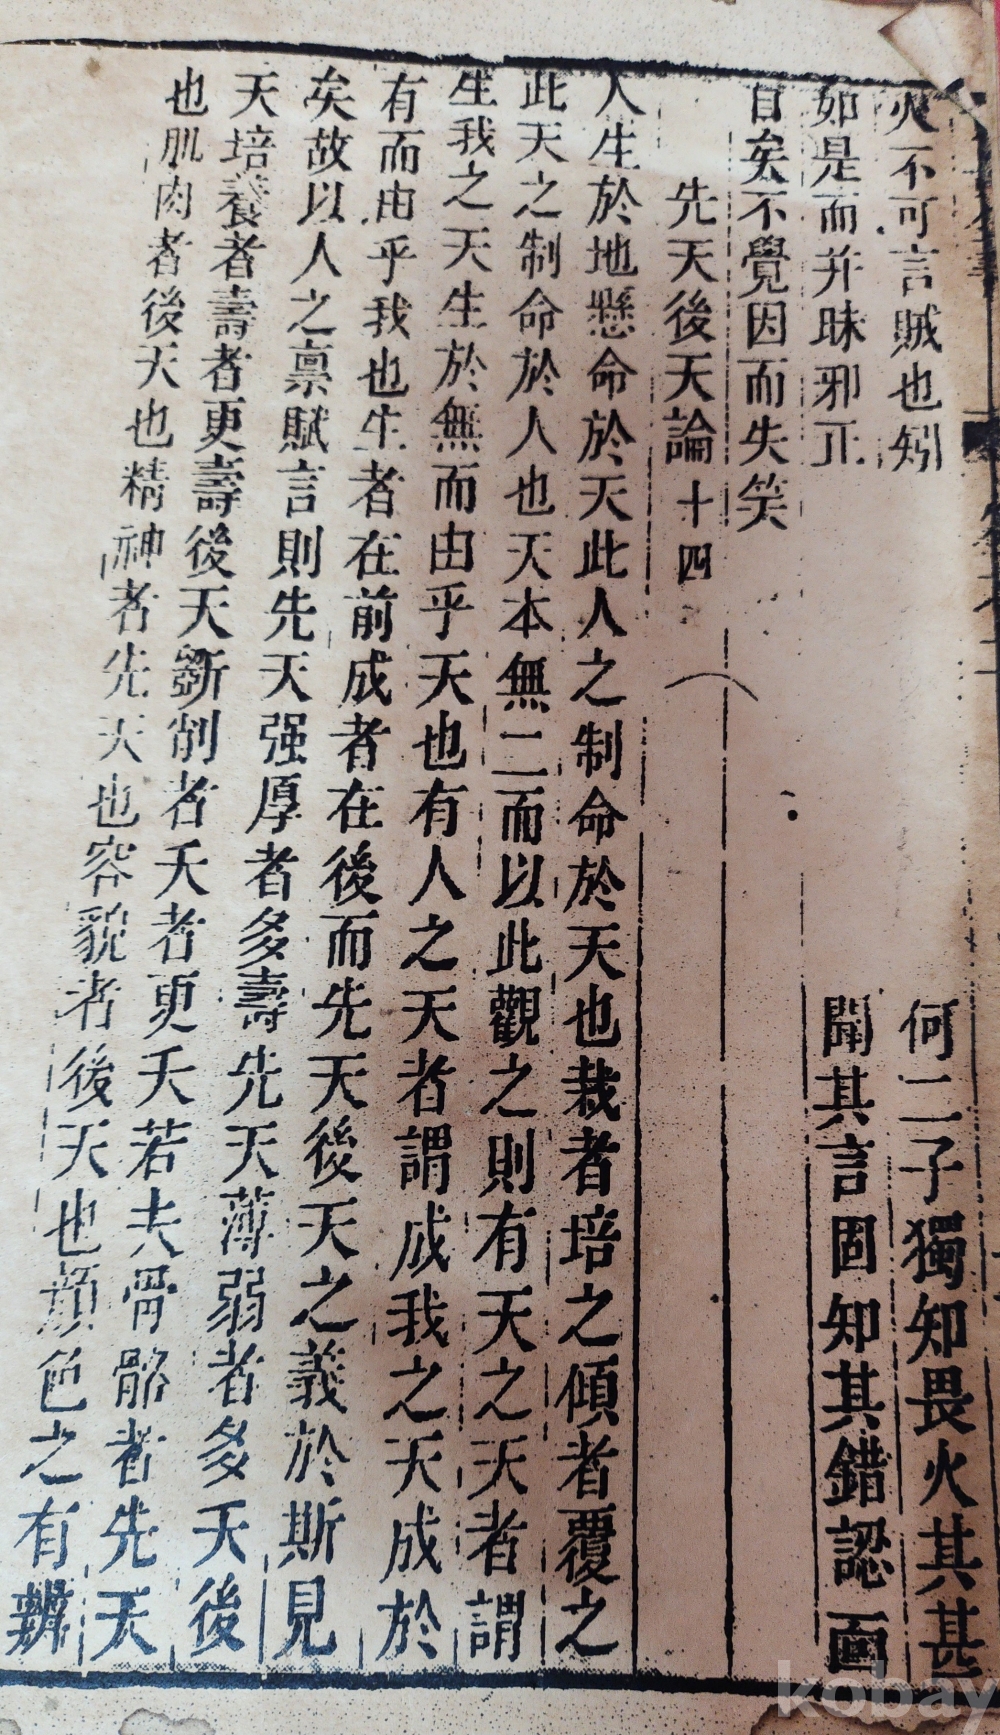 火不可言賊也矧何二子獨知畏火其甚
如是而并昧邪正閒其言固知其錯認面
目矣不覺因而失笑
先天後天論 十四
人生於地懸命於天此人之制命於天也栽者培之傾者覆之
此天之制命於人也天本無二而以此觀之則有天之天者謂
生我之天生於無而由乎天也有人之天者謂成我之天成於
有而由乎我也生者在前成者在後而先天後天之義於斯見
矣故以人之禀賦言則先天强厚者多壽先天薄弱者多夭後
天培養者壽者更壽後天斵削者夭者更夭若夫骨骼者先天
也肌肉者後天也精神者先天也容貌者後天也顔色之有辨
kobay